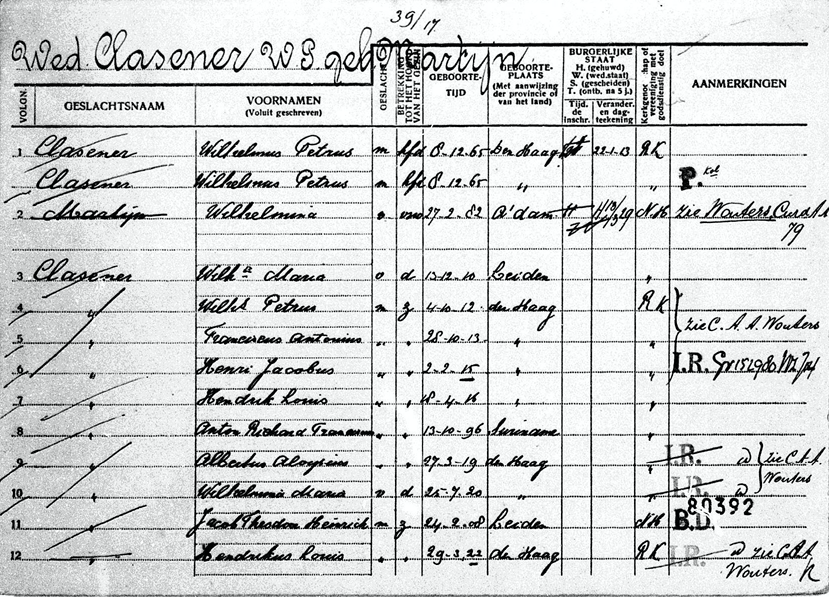 39/17
Wed. Clasener W.P. geb. Martijn
VOLGN. GESLACHTSNAAM VOORNAMEN (Voluit geschreven) GESLACHT BETREKKING TOT HET HOOFD VAN HET GEZIN GEBOORTE-TIJD GEBOORTE-PLAATS (Met aanwijzing der provincie of van het land) BURGERLIJKE STAAT H. (gehuwd) W. (wed.staat) S. (gescheiden) T. (ontb. na 5 j.) Tijd. de inschr. Verander. en dag-teekening Kerkgenootschap of vereeniging met godsdienstig doel AANMERKINGEN
1 Clasener Wilhelmus Petrus m hfd 8-12-65 Den Haag 22-1-13 RK
Clasener Wilhelmus Petrus m hfd 8-12-65 " " P.
2 Martijn Wilhelmina v vrw 27-2-82 A'dam H N.H zie Wouters,
79
3 Clasener Wilh^a Maria v d 13-12-10 Leiden "
4 " Wilh^s Petrus m z 4-10-12 den Haag RK
5 " Franciscus Antonius " " 28-10-13 " " zie C. A. A. Wouters
6 " Henri Jacobus " " 2-2-15 " " I.R.
7 " Hendrik Louis " " 18-4-16 " "
8 " Anton Richard " " 13-10-96 Suriname "
9 " Albertus Aloysius " " 27-3-19 den Haag " I.R. zie C.A.A.
Wouters
10 " Wilhelmina Maria v d 25-7-20 " " I.R.
80392
11 " Jacob Theodoor Heinrich m z 24-2-08 Leiden N.H B.D.
12 " Hendrikus Louis " " 29-3-22 den Haag RK I.R. zie C.A.A.
Wouters.